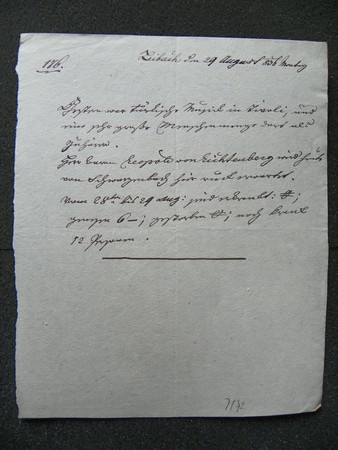 176.
Laibach den 29 August 836 Montag
Gestern war türkische Musik in Tivoli, und
eine sehr große Menschenmenge dort als
Zuhörer.
Herr Baron Leopold von Lichtenberg wird heute
von Schwarzenbach hier rück erwartet.
Vom 28ten bis 29 Aug: sind erkrankt: 4;
genesen 6 –; gestorben 4; noch krank
12 Personen.
7172